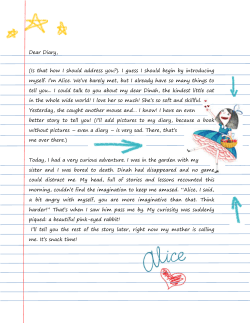 Dear Diary,
(Is that how I should address you?). I guess I should begin by introducing
myself. I'm Alice. We've barely met, but I already have so many things to
tell you... I could talk to you about my dear Dinah, the kindest little cat
in the whole world! I love her so much! She's so soft and skillful.
Yesterday, she caught another mouse and... I know! I have an even
better story to tell you! (I'll add pictures to my diary, because a book
without pictures – even a diary – is very sad. There, that's
me over there.)
Today, I had a very curious adventure. I was in the garden with my
sister and I was bored to death. Dinah had disappeared and no game
could distract me. My head, full of stories and lessons recounted this
morning, couldn't find the imagination to keep me amused. "Alice, I said,
a bit angry with myself, you are more imaginative than that. Think
harder!" That's when I saw him pass me by. My curiosity was suddenly
piqued: a beautiful pink-eyed rabbit!
I'll tell you the rest of the story later, right now my mother is calling
me. It's snack time!
Alice